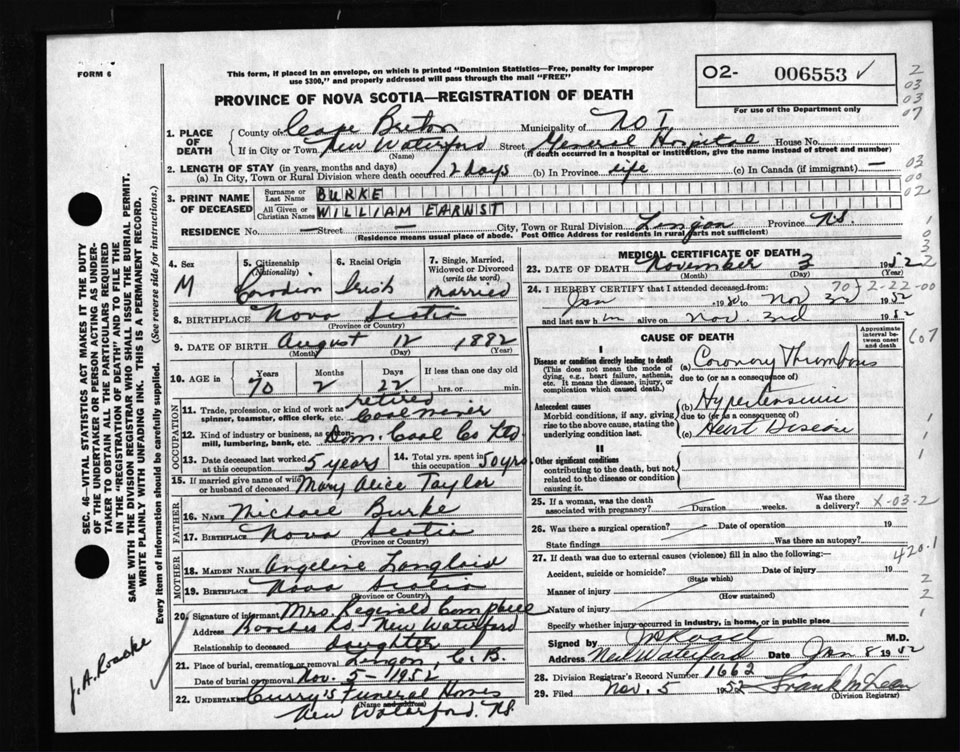 FORM 6
This form, if placed in an envelope, on which is printed "Dominion Statistics—Free, penalty for improper
use $300," and properly addressed will pass through the mail "FREE"
O2- 006553 ✓
For use of the Department only
2
03
03
07
PROVINCE OF NOVA SCOTIA—REGISTRATION OF DEATH
1. PLACE OF DEATH
County of Cape Breton Municipality of
If in City or Town New Waterford Street General Hospital House No.
(Name) (If death occurred in a hospital or institution, give the name instead of street and number)
2. LENGTH OF STAY (in years, months and days)
(a) In City, Town or Rural Division where death occurred 2 days (b) In Province life (c) In Canada (if immigrant) —
03
00
02
3. PRINT NAME OF DECEASED
Surname or Last Name BURKE
All Given or Christian Names WILLIAM EARNST
RESIDENCE No. — Street — City, Town or Rural Division Lingan Province N.S.
(Residence means usual place of abode. Post Office Address for residents in rural parts not sufficient)
4. Sex M
5. Citizenship (Nationality) Canadian
6. Racial Origin Irish
7. Single, Married, Widowed or Divorced (write the word) Married
8. BIRTHPLACE Nova Scotia
(Province or Country)
9. DATE OF BIRTH August 12 1882
(Month) (Day) (Year)
10. AGE in Years Months Days If less than one day old
70 2 22 hrs. or min.
OCCUPATION
11. Trade, profession, or kind of work as spinner, teamster, office clerk, etc. retired Coal miner
12. Kind of industry or business, as mill, lumbering, bank, etc. Dom. Coal Co Ltd
13. Date deceased last worked at this occupation 5 years
14. Total yrs. spent in this occupation 50 yrs.
15. If married give name of wife or husband of deceased Mary Alice Taylor
FATHER
16. NAME Michael Burke
17. BIRTHPLACE Nova Scotia
(Province or Country)
MOTHER
18. MAIDEN NAME Angeline
19. BIRTHPLACE Nova Scotia
(Province or Country)
20. Signature of informant Mrs. Reginald Campbell
Address Roaches Rd. New Waterford
Relationship to deceased daughter
21. Place of burial, cremation or removal Lingan, C. B.
Date of burial or removal Nov. 5 - 1952
22. UNDERTAKER Curry's Funeral Home
(Name and address)
New Waterford. N.S.
MEDICAL CERTIFICATE OF DEATH
23. DATE OF DEATH November 3 1952
(Month) (Day) (Year)
24. I HEREBY CERTIFY that I attended deceased from:
70-2-22-00
Jan 1950 to Nov 3rd 1952
and last saw him alive on Nov. 3rd 1952
CAUSE OF DEATH
Approximate interval between onset and death
I
Disease or condition directly leading to death
(This does not mean the mode of dying, e.g., heart failure, asthenia, etc. It means the disease, injury, or complication which caused death.)
(a) Coronary Thrombosis
due to (or as a consequence of)
Antecedent causes
Morbid conditions, if any, giving rise to the above cause, stating the underlying condition last.
(b) Hypertensive
due to (or as a consequence of)
(c) Heart Disease
II
Other significant conditions
contributing to the death, but not related to the disease or condition causing it.
25. If a woman, was the death associated with pregnancy? Duration weeks. Was there a delivery?
X-03-2
26. Was there a surgical operation? Date of operation 19
State findings Was there an autopsy?
27. If death was due to external causes (violence) fill in also the following:—
420.1
Accident, suicide or homicide? Date of injury 19
(State which)
Manner of injury
(How sustained)
Nature of injury
Specify whether injury occurred in industry, in home, or in public place
Signed by M.D.
Address New Waterford Date Jan 8 1952
28. Division Registrar's Record Number 1662
29. Filed Nov. 5 1952 Frank McLean
(Division Registrar)
SEC. 46—VITAL STATISTICS ACT MAKES IT THE DUTY
OF THE UNDERTAKER OR PERSON ACTING AS UNDER-
TAKER TO OBTAIN ALL THE PARTICULARS REQUIRED
IN THE "REGISTRATION OF DEATH" AND TO FILE THE
SAME WITH THE DIVISION REGISTRAR WHO SHALL ISSUE THE BURIAL PERMIT.
WRITE PLAINLY WITH UNFADING INK. THIS IS A PERMANENT RECORD.
Every item of information should be carefully supplied. (See reverse side for instructions.)